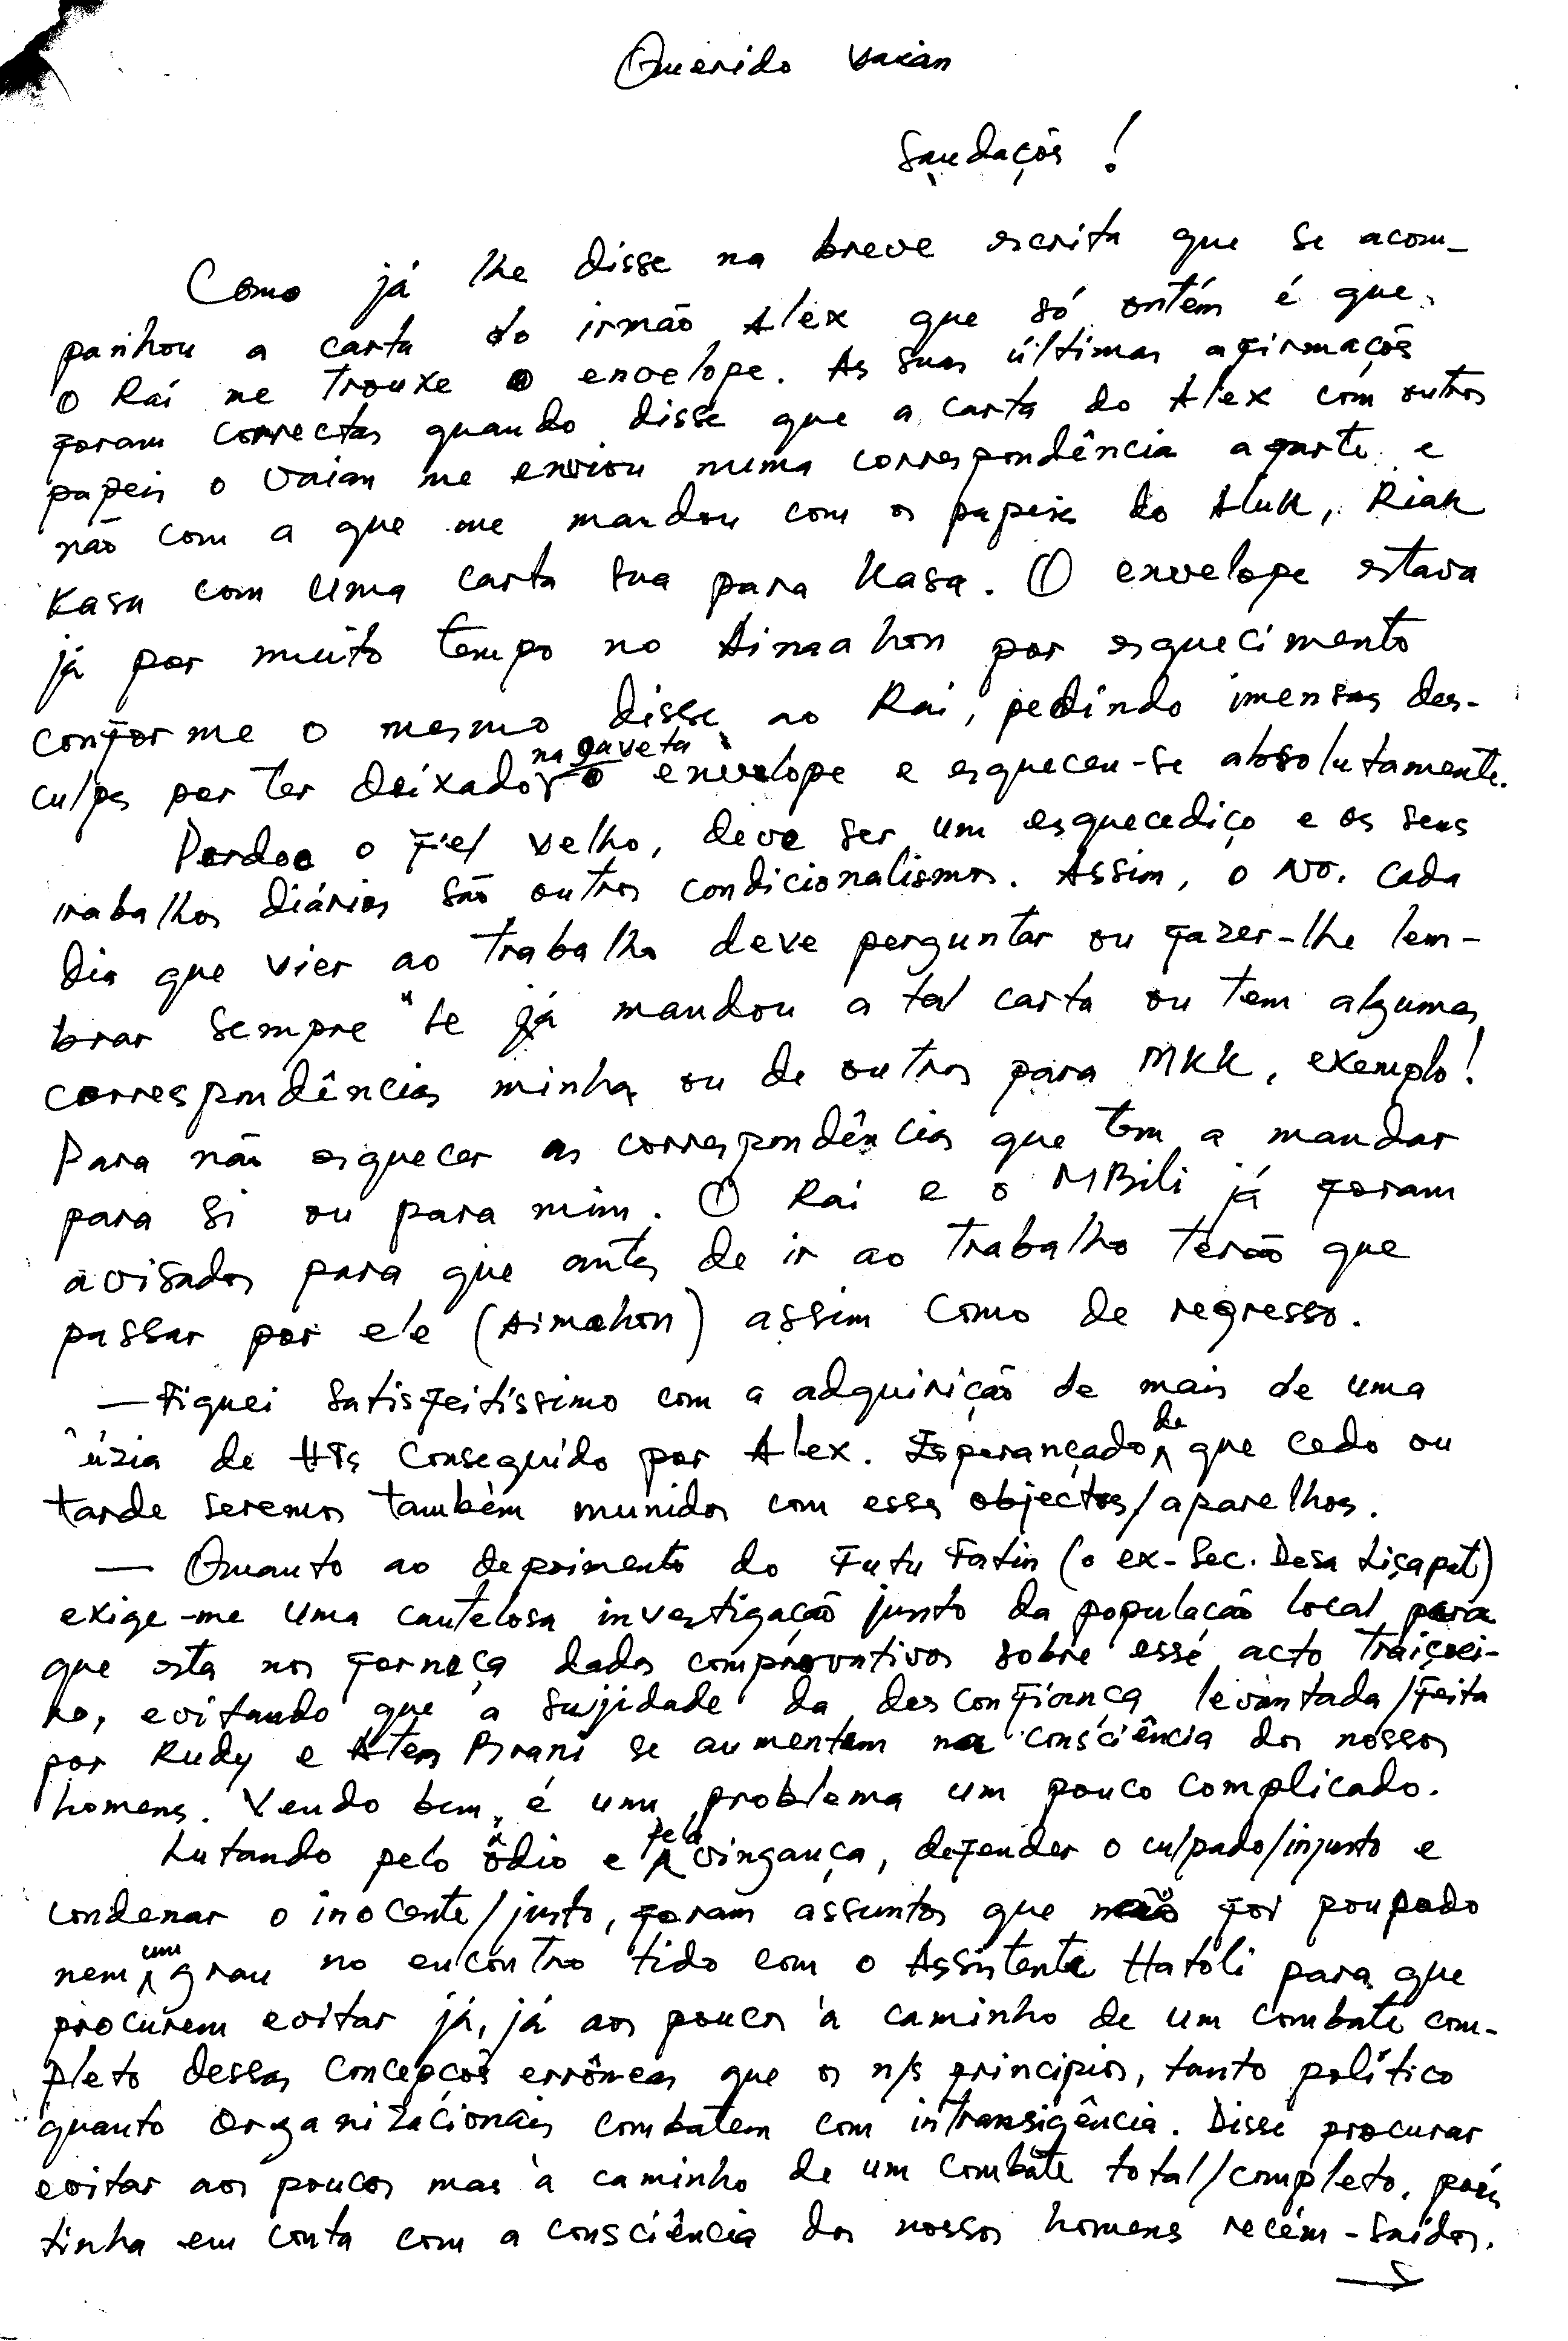 Querido Vaian
Saudaçõs !
Como já lhe disse na breve escrita que se acom-
panhou a carta do irmão Alex que só ontém é que
o Rai me trouxe o envelope. As suas últimas afirmaçõs
foram correctas quando disse que a carta do Alex com outros
papeis o Vaian me enviou numa correspondência aparte e
não com a que me mandou com os papeis do Aluk, Riak
Kasa com uma carta sua para Kasa. O envelope estava
já por muito tempo no Aimahon por esquecimento
conforme o mesmo disse ao Rai, pedindo imensas des-
culpas por ter deixado na gaveta o envelope e esqueceu-se absolutamente.
Perdoe o fiel velho, deve ser um esquecediço e os seus
trabalhos diários são outros condicionalismos. Assim, o No. cada
dia que vier ao trabalho deve perguntar ou fazer-lhe lem-
brar sempre "se já mandou a tal carta ou tem algumas
correspondências minha ou de outros para MKK, exemplo!
Para não esquecer as correspondências que tem a mandar
para si ou para mim. O Rai e o MBili já foram
avisados para que antes de ir ao trabalho terão que
passar por ele (Aimahon) assim como de regresso.
— Fiquei satisfeitíssimo com a adquirição de mais de uma
úzia de HTs conseguido por Alex. Esperançado de que cedo ou
tarde seremos também munidos com esses objectos/aparelhos.
— Quanto ao depoimento do Futu Fatin (o ex-Sec. Desa Liçapat)
exige-me uma cautelosa investigação junto da população local para
que esta nos forneça dados comprovativos sobre esse acto traiçoei-
ro, evitando que a sujidade da desconfiança levantada/feita
por Rudy e Aten Brani se aumentem na consciência dos nossos
homens. Vendo bem, é um problema um pouco complicado.
Lutando pelo ódio e pela vingança, defender o culpado/injusto e
condenar o inocente/justo, foram assuntos que não foi poupado
nem um grau no encontro tido com o Assistente Hatoli para que
procurem evitar já, já aos poucos à caminho de um combate com-
pleto dessas concepçõs errôneas que os n/s principios, tanto político
quanto organizacionais combatem com intransigência. Disse procurar
evitar aos poucos mas à caminho de um combate total/completo, pois
tinha em conta com a consciência dos nossos homens recém-saídos.